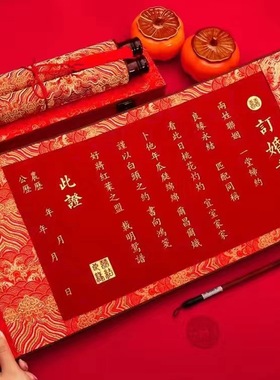 囍
訂婚
兩姓聯姻 一堂締約
良緣永結 匹配同稱
看此日桃花灼灼 宜室宜家
卜他年瓜瓞綿綿 爾昌爾熾
謹以白頭之約 書向鴻箋
好將紅葉之盟 載明鴛譜
此證
農曆 年 月 日
公歷 年 月 日